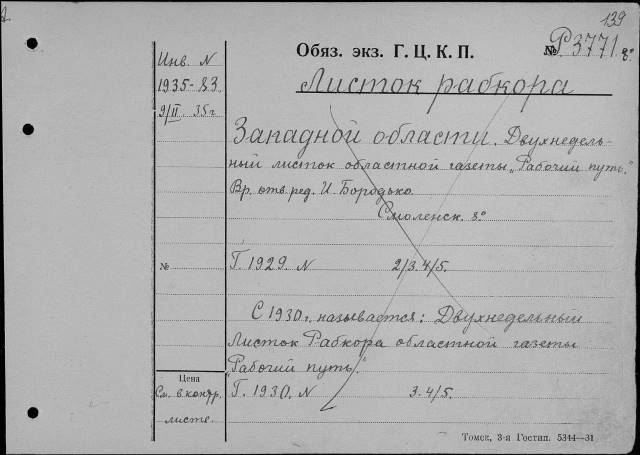 139
Обяз. экз. Г. Ц. К. П.
№ Р3771 8°
Инв. N
1935-83
9/II 35г
Листок рабкора
Западной области. Двухнедель-
ный листок областной газеты „Рабочий путь."
Вр. отв. ред. И. Бородько.
Смоленск. 8°
№
Г. 1929. N 2/3. 4/5.
С 1930г. называется: Двухнедельный
Листок Рабкора областной газеты
„Рабочий путь."
Г. 1930. N 3. 4/5.
Цена
См. в контр.
листе.
Томск, 3-я Гостип. 5344—31